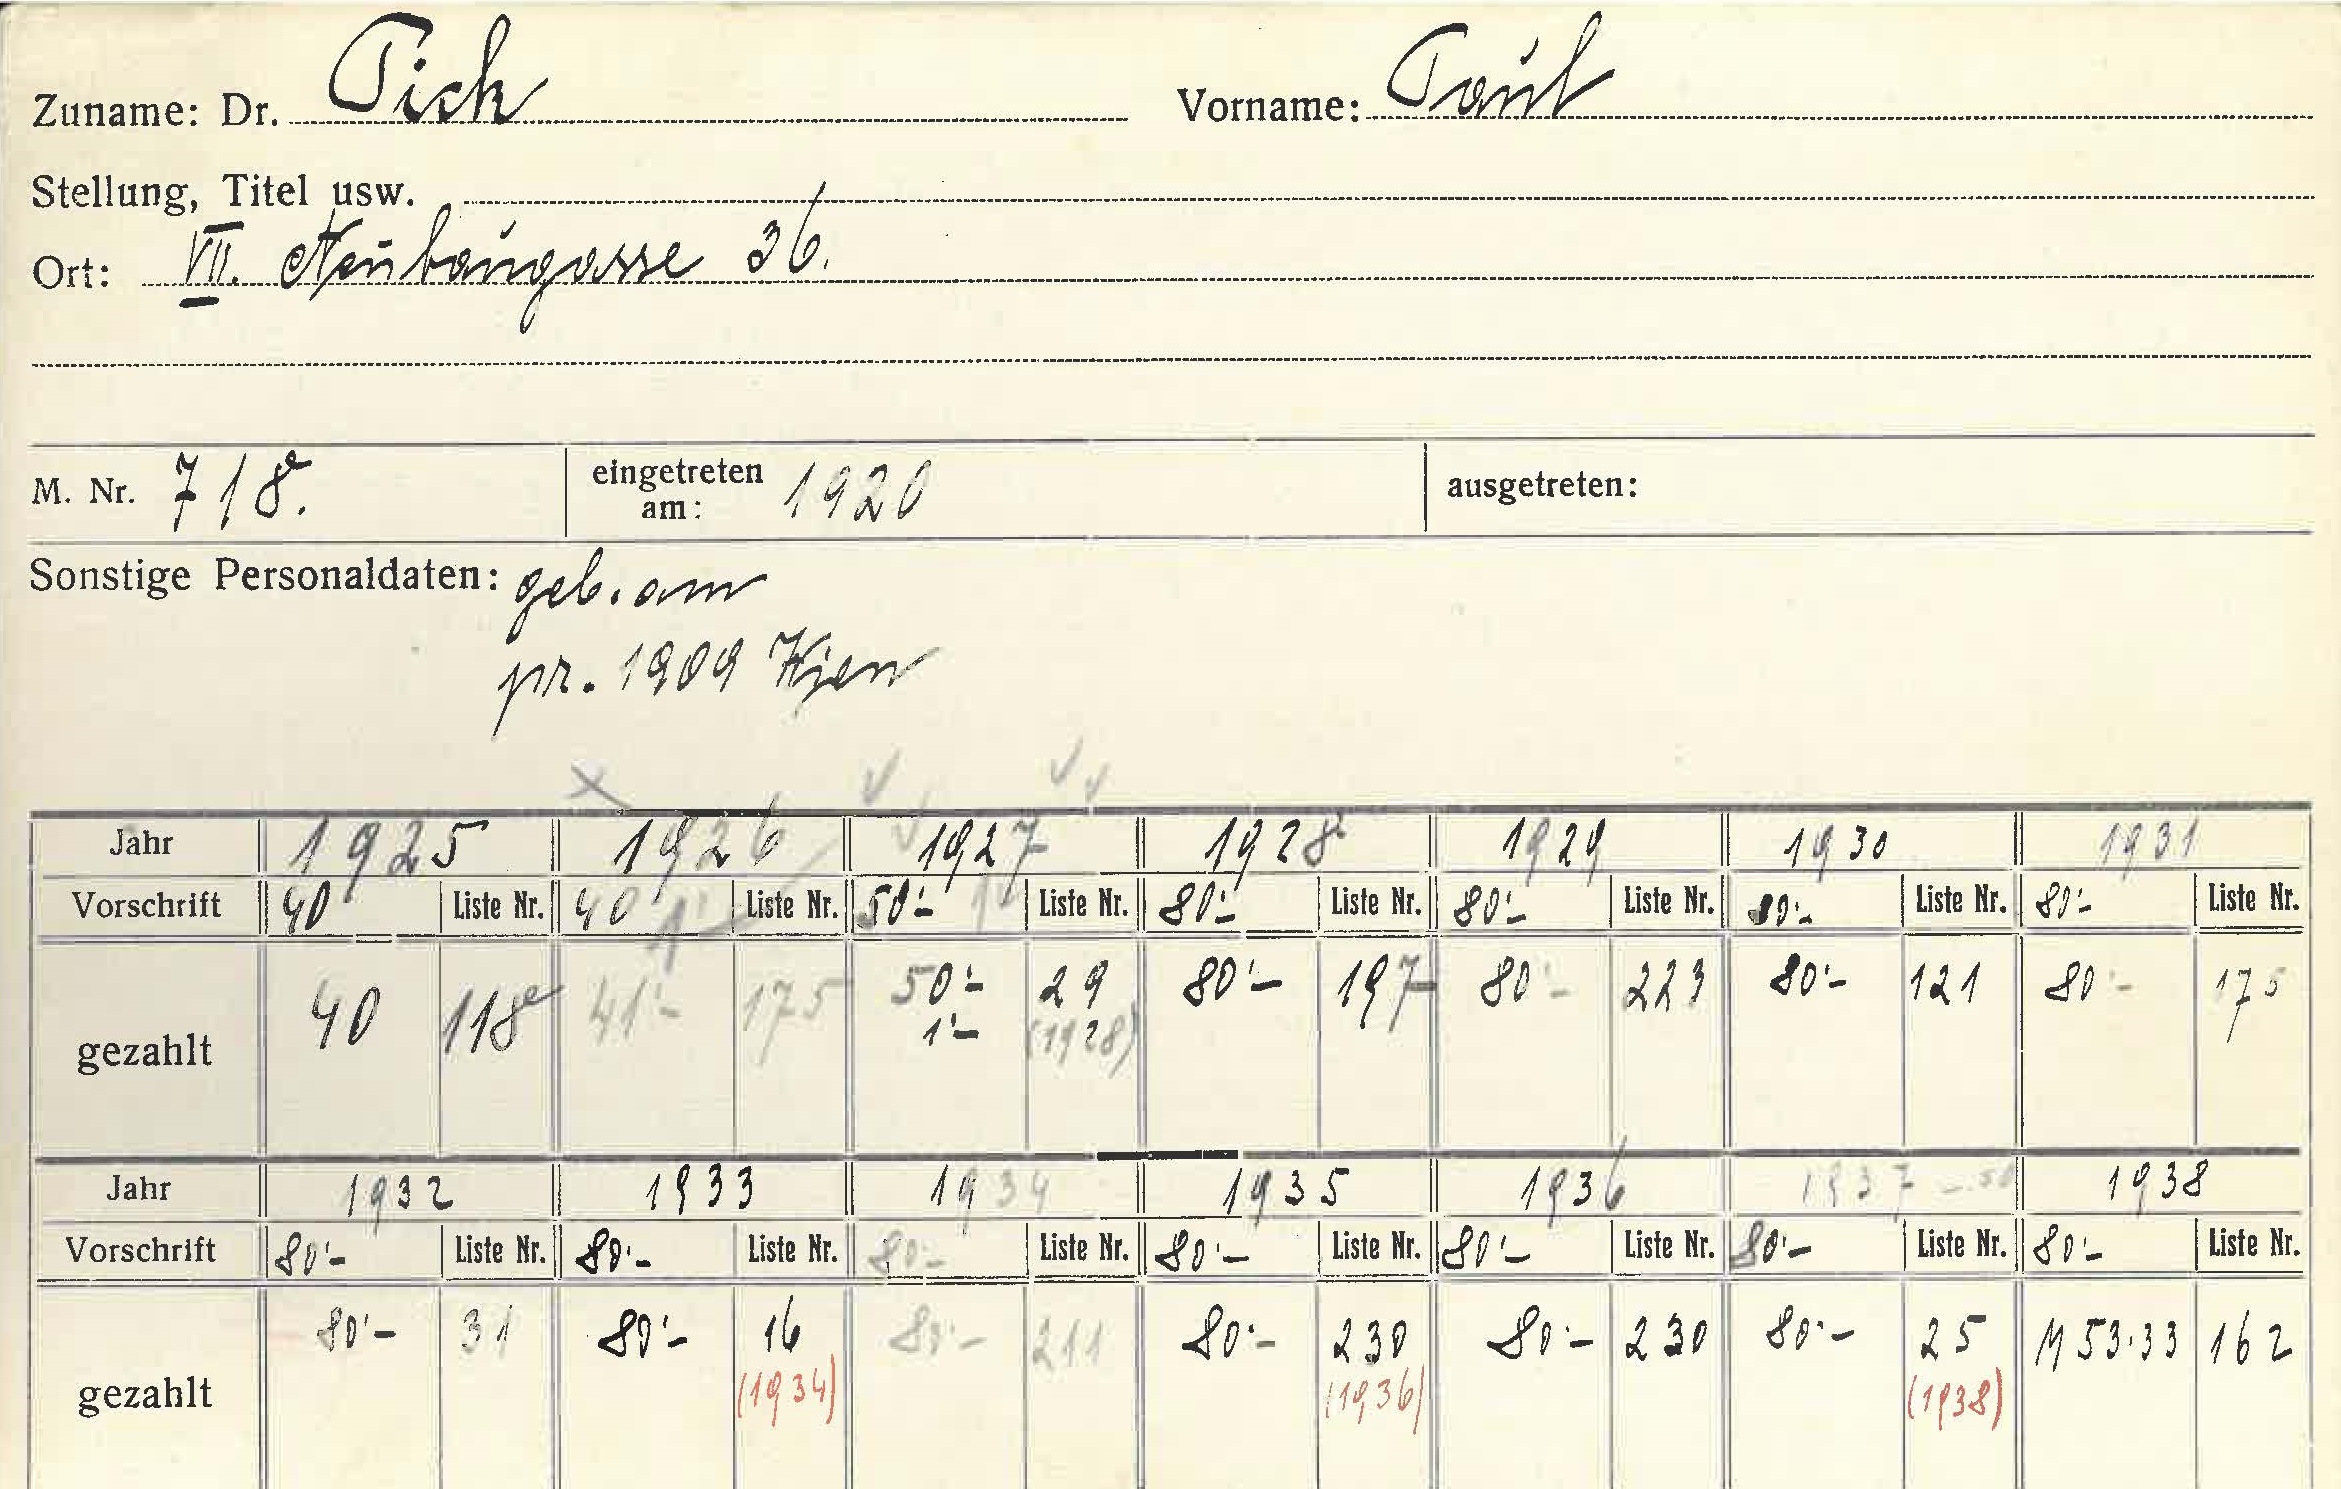 Zuname: Dr. Pick Vorname: Paul
Stellung, Titel usw.
Ort: VII. Neubaugasse 36.
M. Nr. 718. eingetreten am: 1920 ausgetreten:
Sonstige Personaldaten: geb. am
pr. 1909 Wien
Jahr 1925 1926 1927 1928 1929 1930 1931
Vorschrift 40 Liste Nr. 40 Liste Nr. 50'- Liste Nr. 80'- Liste Nr. 80'- Liste Nr. 80'- Liste Nr. 80'- Liste Nr.
gezahlt 40 118 41'- 175 50'- 29 80'- 197 80'- 223 80'- 121 80'- 175
1'- (1928)
Jahr 1932 1933 1934 1935 1936 1937 -.50 1938
Vorschrift 80'- Liste Nr. 80'- Liste Nr. 80'- Liste Nr. 80'- Liste Nr. 80'- Liste Nr. 80'- Liste Nr. 80'- Liste Nr.
gezahlt 80'- 31 80'- 16 80'- 211 80'- 230 80'- 230 80'- 25 M 53.33 162
(1934) (1936) (1938)